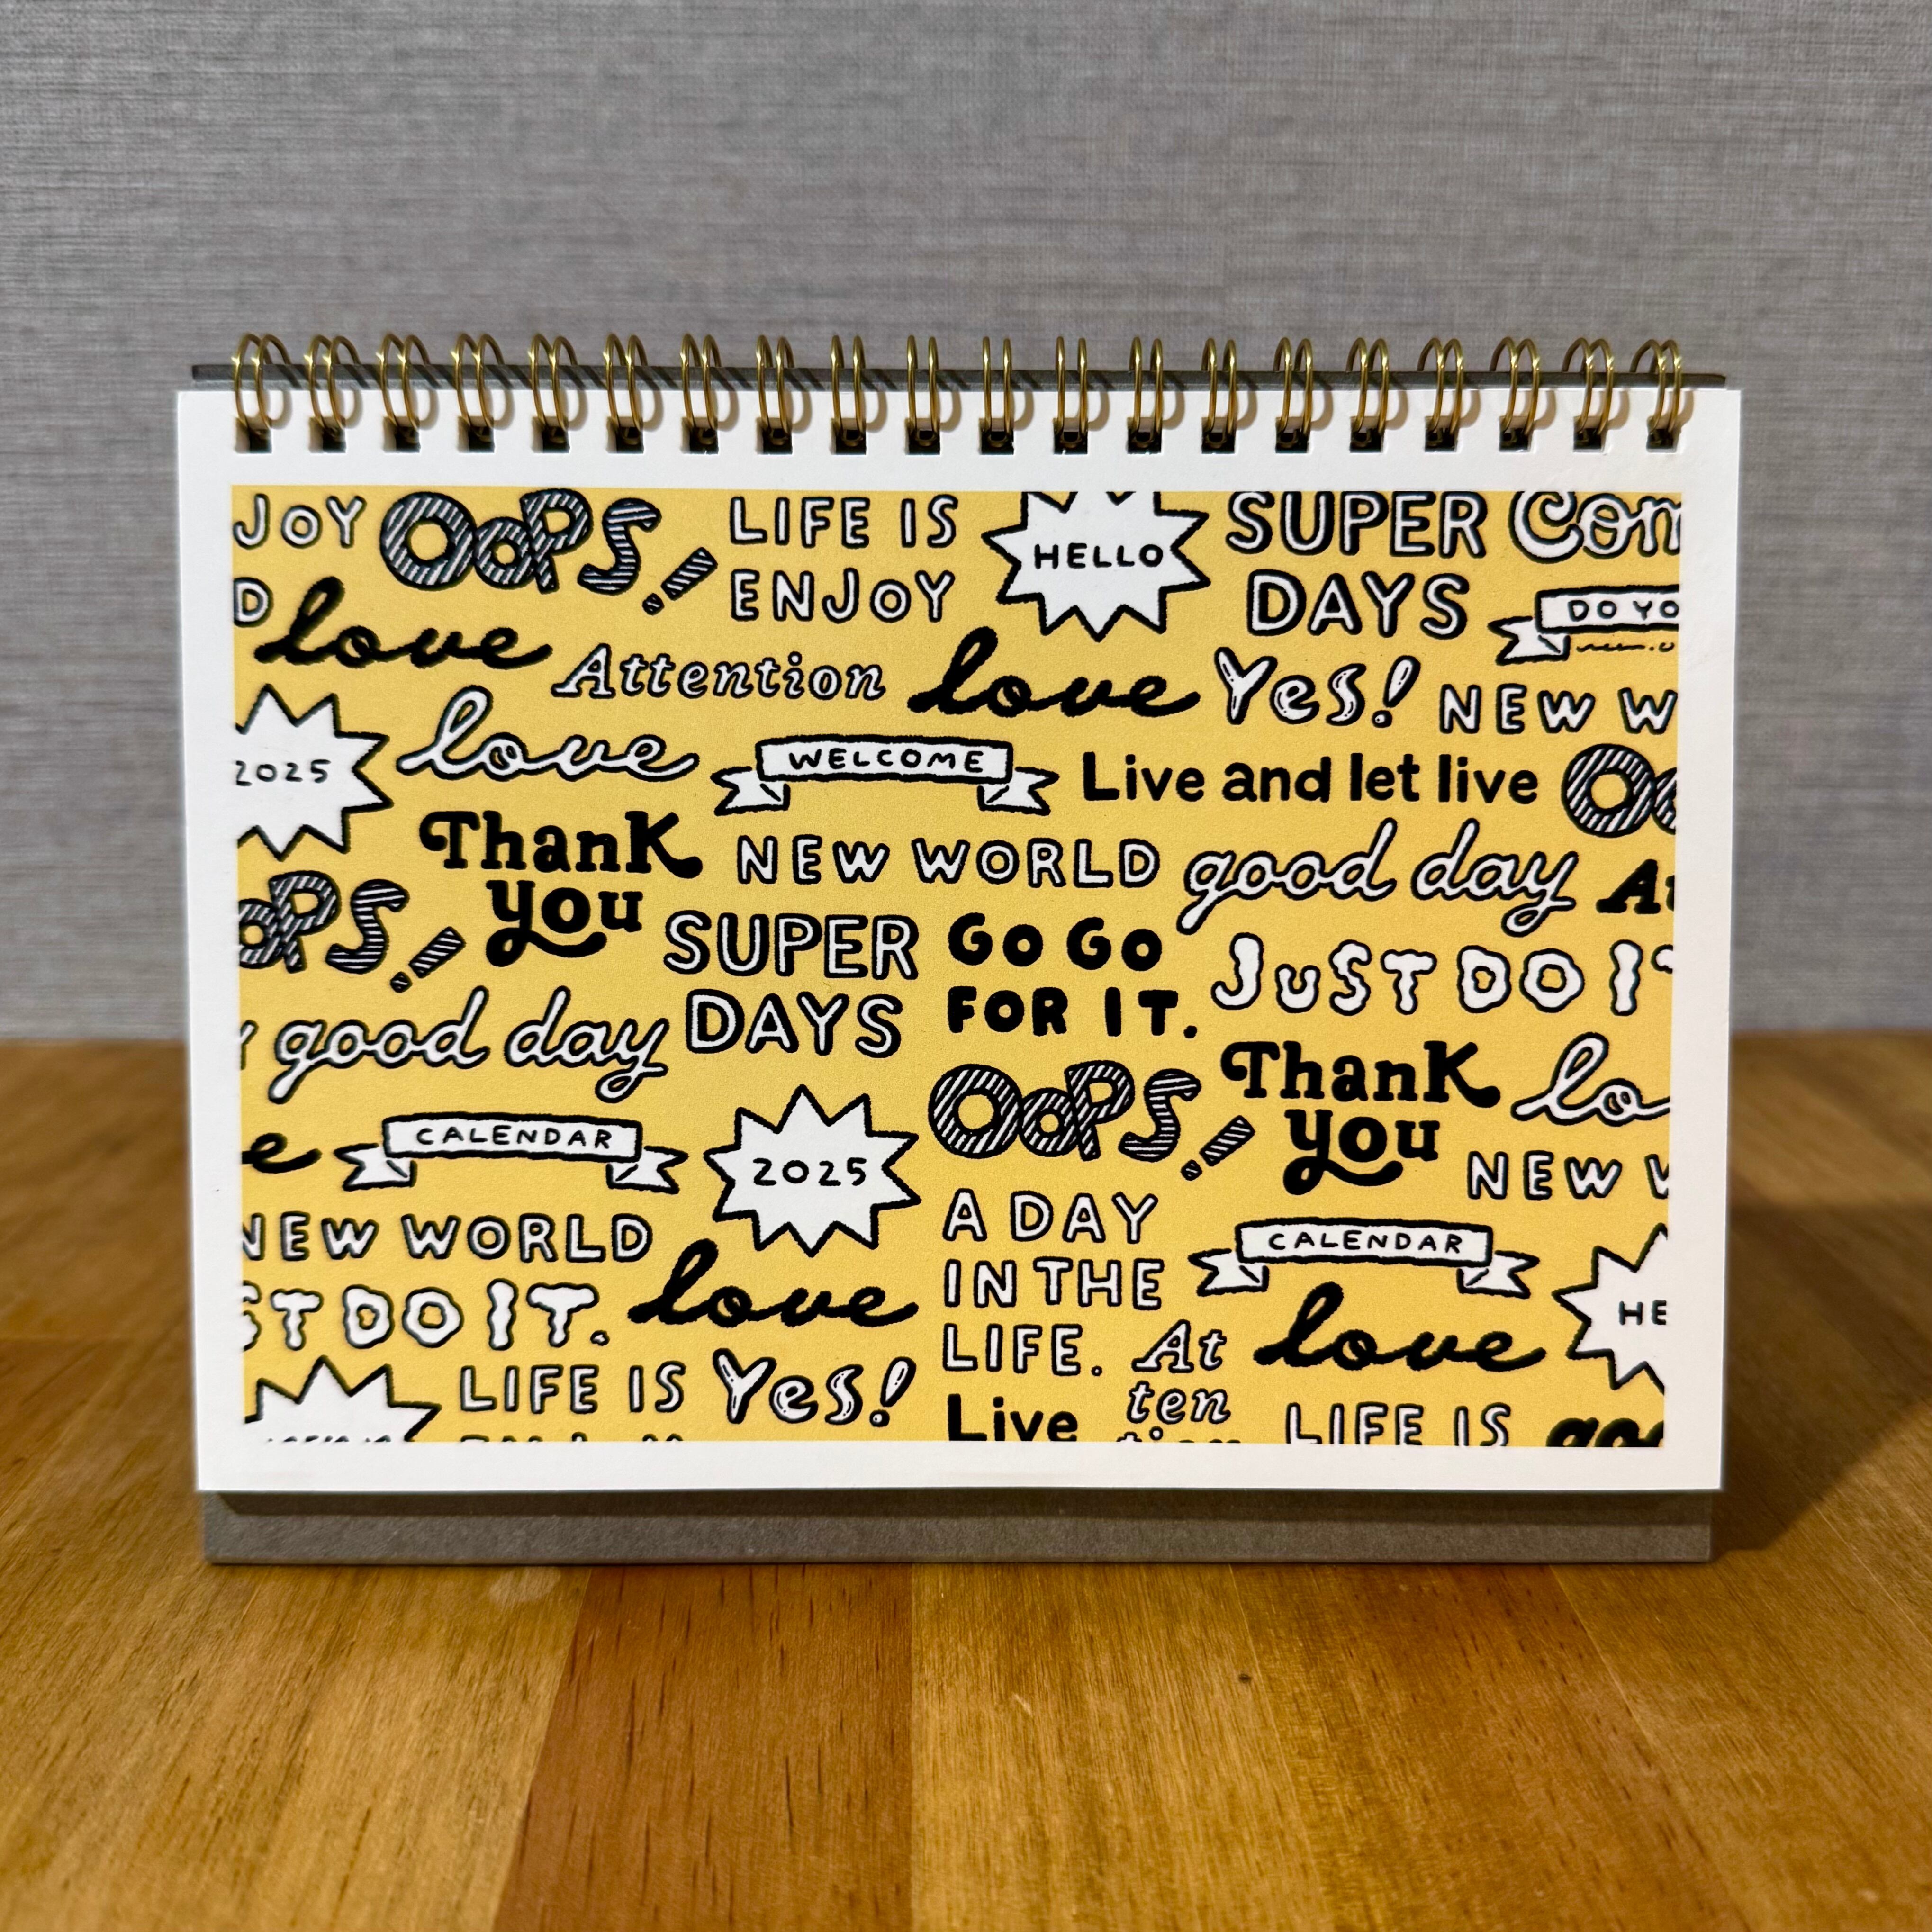 JOY
OOPS!
LIFE IS
ENJOY
HELLO
SUPER
DAYS
Com
D
love
Attention
love
Yes!
DO YO
NEW W
2025
love
WELCOME
Live and let live
Oo
Thank
you
NEW WORLD
good day
At
OPS!
SUPER
DAYS
GO GO
FOR IT.
JUST DO IT
good day
OOPS!
Thank
you
lo
e
CALENDAR
2025
NEW W
NEW WORLD
A DAY
IN THE
LIFE.
CALENDAR
ST DO IT.
love
At
ten
love
HE
LIFE IS
Yes!
Live
LIFE IS
goo